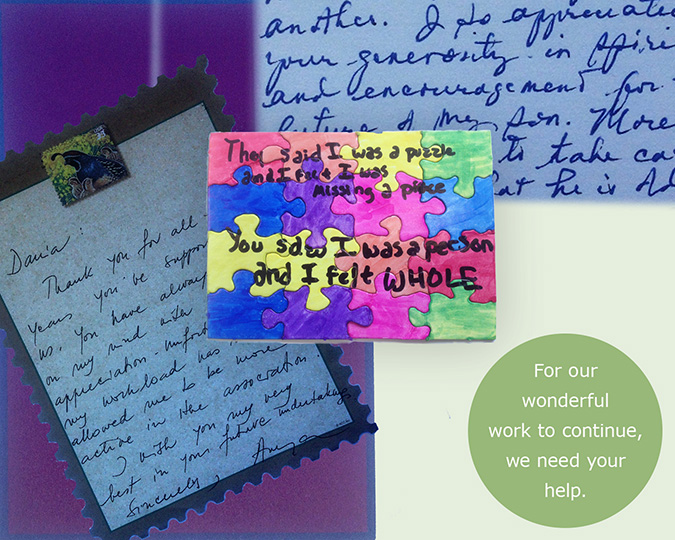 another. I so appreciate
your generosity in spirit
and encouragement for
future of my son. More
to take car
at he is
They said I was a puzzle
and I felt I was
missing a piece
You saw I was a person
and I felt WHOLE
Dania:
Thank you for all
years you've suppor
us. You have always
on my mind with
appreciation. Unfort
my workload has
allowed me to be more
active in the association
I wish you my very
best in your future undertakings
Sincerely,
For our
wonderful
work to continue,
we need your
help.